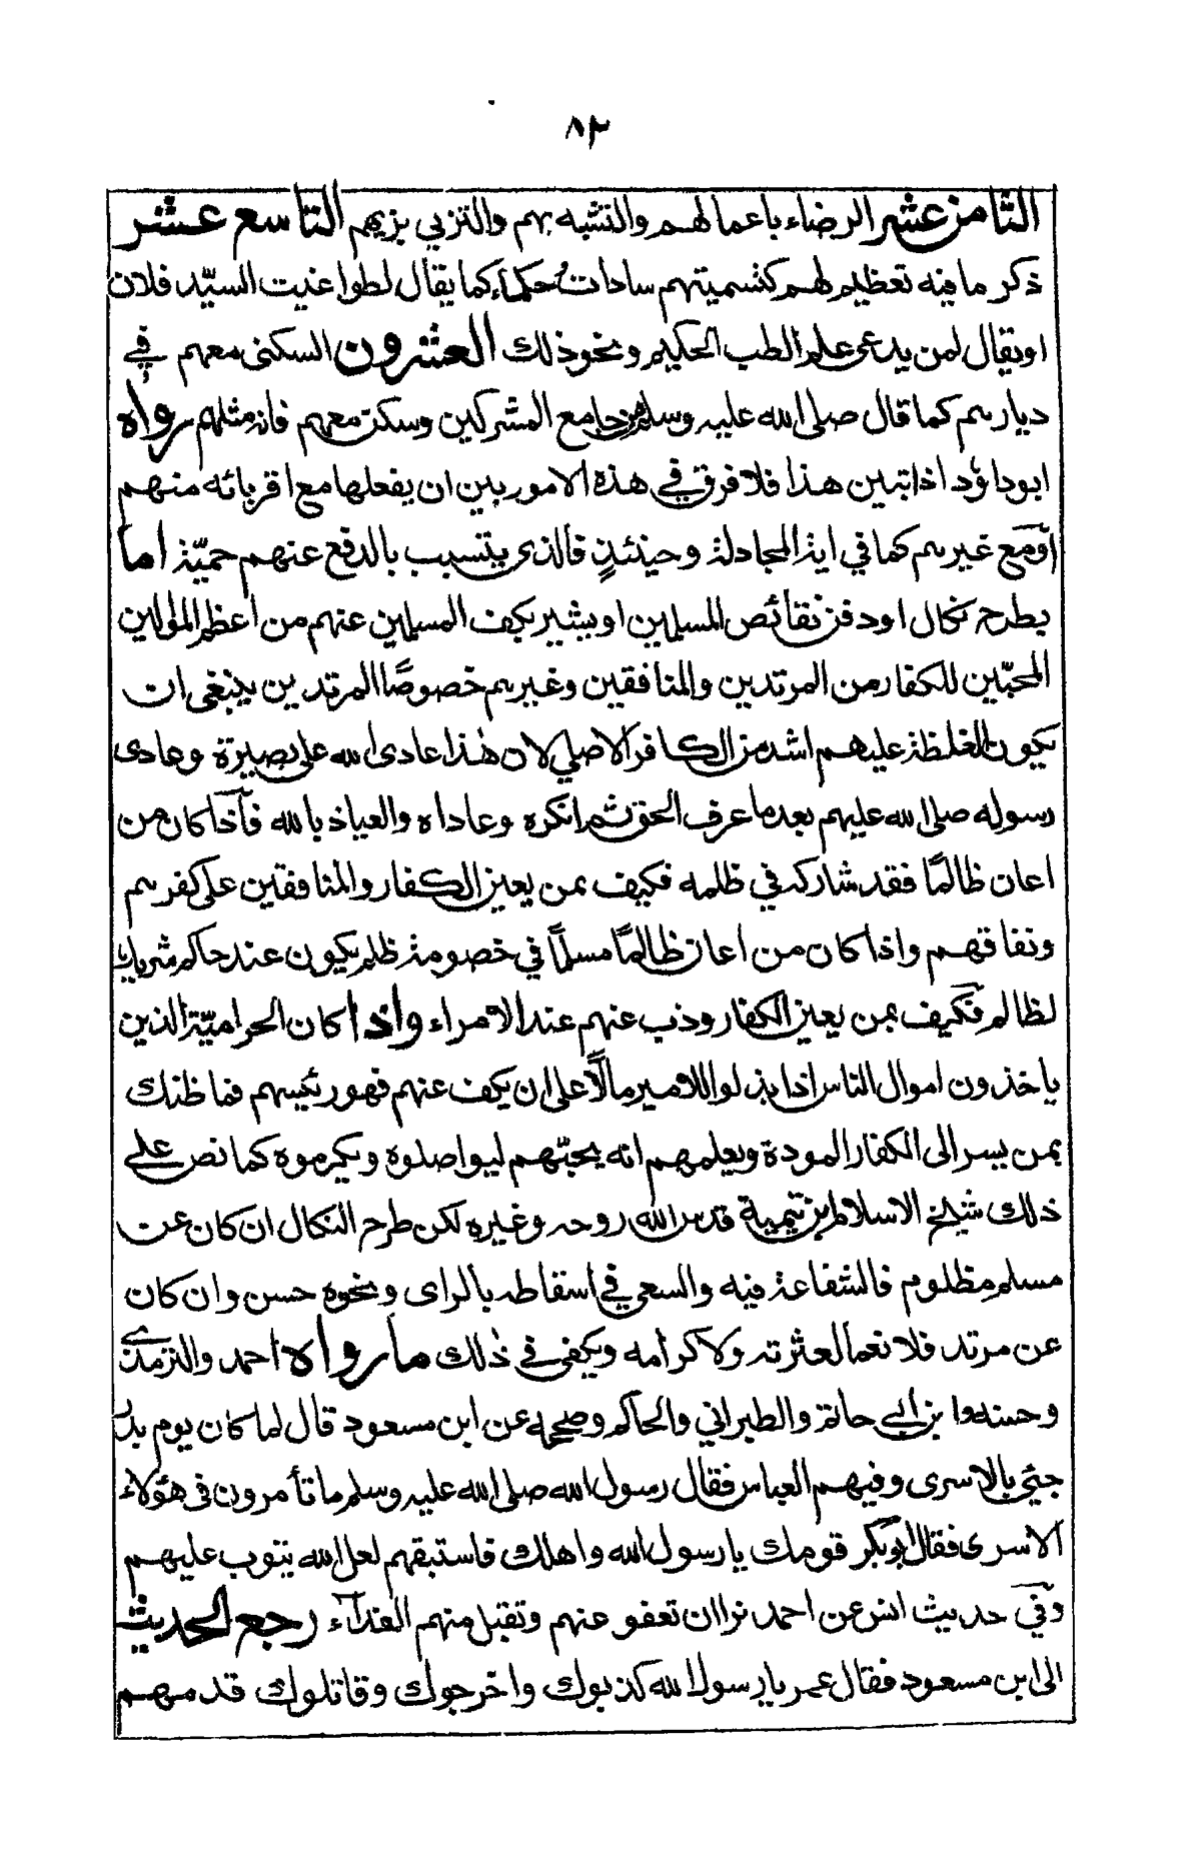 ٨٢
الثامن عشر الرضاء باعمالهم والتشبه بهم والتزيي بزيهم التاسع عشر
ذكر ما فيه تعظيم لهم كتسميتهم سادات حكماء كما يقال لطواغيت السيّد فلان
او يقال لمن يدعى علم الطب الحكيم ونحو ذلك العشرون السكنى معهم في
ديارهم كما قال صلى الله عليه وسلم من جامع المشركين وسكن معهم فانه مثلهم رواه
ابو داؤد اذا تبين هذا فلا فرق في هذه الامور بين ان يفعلها مع اقربائه منهم
او مع غيرهم كما في اية المجادلة وحينئذٍ فالذى يتسبب بالدفع عنهم حميّة اما
بطرح نكال او دفن نقائص المسلمين او يشير بكف المسلمين عنهم من اعظم الموالين
المحبّين للكفار من المرتدين والمنافقين وغيرهم خصوصًا المرتدين ينبغى ان
يكون الغلظة عليهم اشد من الكافر الاصلي لان هٰذا عادى الله على بصيرة وعادى
رسوله صلى الله عليهم بعد ما عرف الحق ثم انكره وعاداه والعياذ بالله فاذا كان من
اعان ظالمًا فقد شاركه في ظلمه فكيف بمن يعين الكفار والمنافقين على كفرهم
ونفاقهم واذا كان من اعان ظالمًا مسلمًا في خصومة ظلم يكون عند حاكم شريك
لظالم فكيف بمن يعين الكفار وذب عنهم عند الامراء واذا كان الحراميّة الذين
ياخذون اموال الناس اذا بذلوا للامير مالًا على ان يكف عنهم فهو رئيسهم فما ظنك
بمن يسر الى الكفار المودة ويعلمهم انه يحبّهم ليواصلوه ويكرموه كما نص على
ذلك شيخ الاسلام ابن تيمية قدس الله روحه وغيره لكن طرح النكال ان كان عن
مسلم مظلوم فالشفاعة فيه والسعي في اسقاطه بالراى ونحوه حسن وان كان
عن مرتد فلا نعما لعثرته ولا كرامه ويكفى في ذٰلك ما رواه احمد والترمذى
وحسنه وابن ابي حاتم والطبراني والحاكم وصححه عن ابن مسعود قال لما كان يوم بدر
جئي بالاسرى وفيهم العباس فقال رسول الله صلى الله عليه وسلم ما تأمرون فى هٰؤلاء
الاسرى فقال ابو بكر قومك يا رسول الله واهلك فاستبقهم لعل الله يتوب عليهم
وفي حديث انس عن احمد نرا ان تعفو عنهم وتقبل منهم الفداء رجع الحديث
الى ابن مسعود فقال عمر يا رسول الله كذبوك واخرجوك وقاتلوك قدمهم